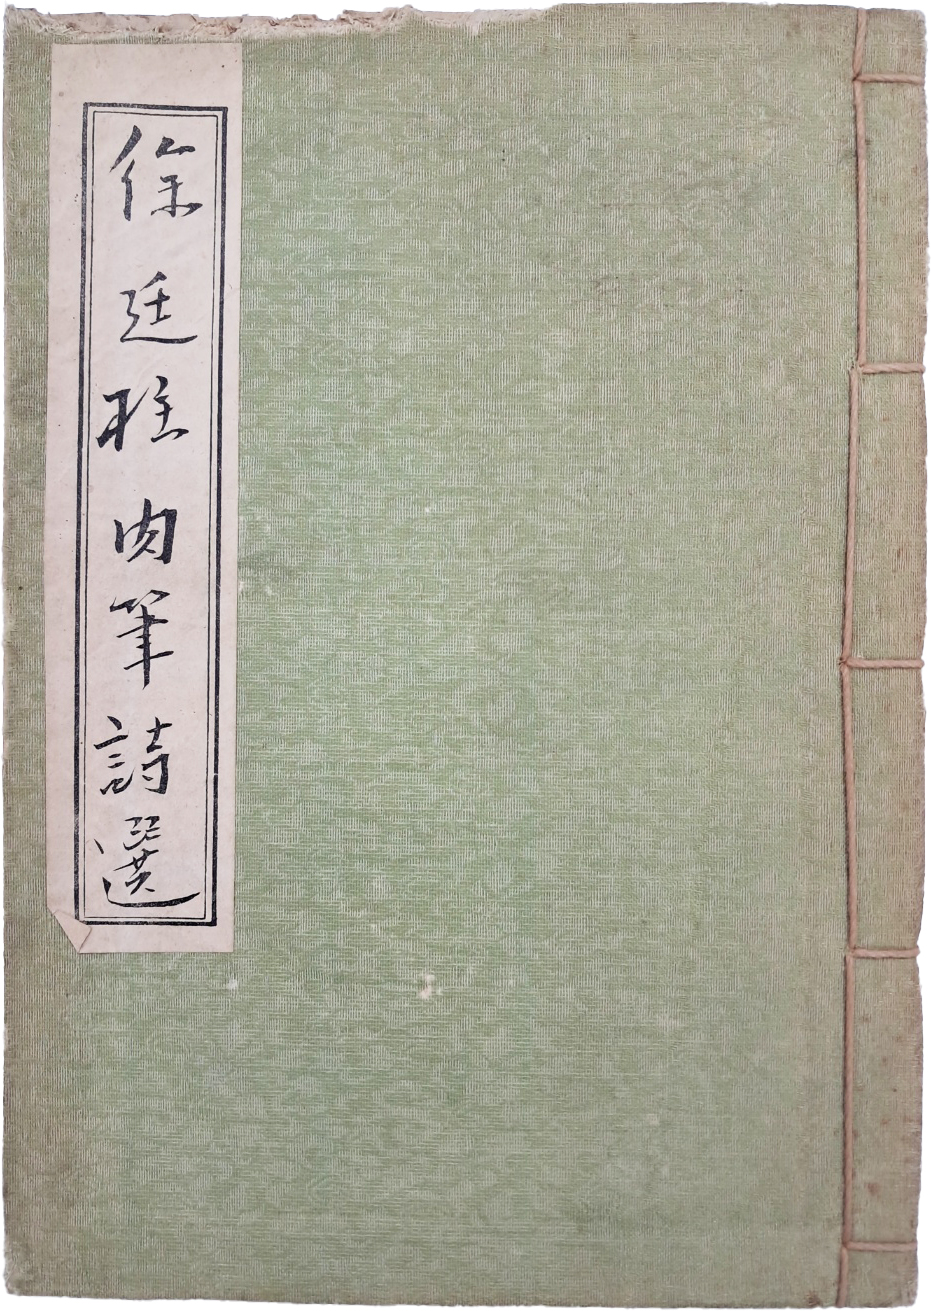 徐廷柱肉筆詩選